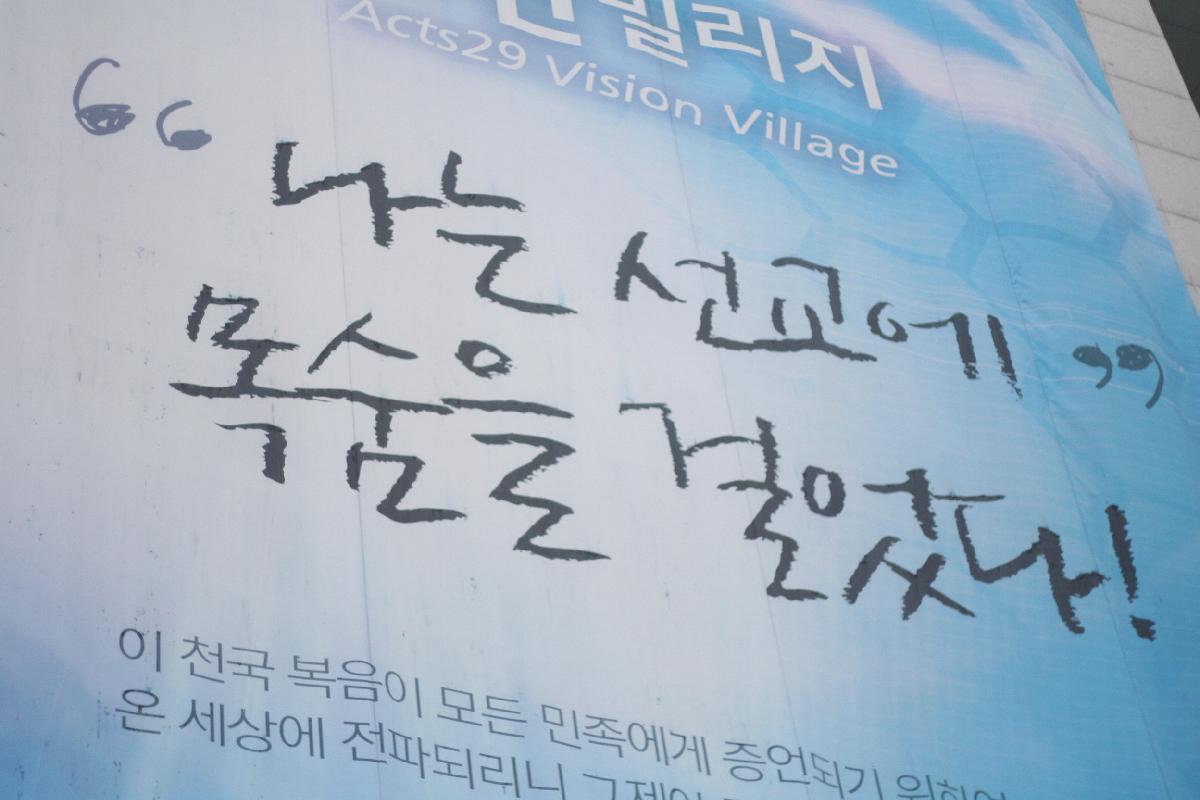 빌리지
Acts29 Vision Village
“나는 선교에”
목숨을 걸었나!
이 천국 복음이 모든 민족에게 증언되기
온 세상에 전파되리니